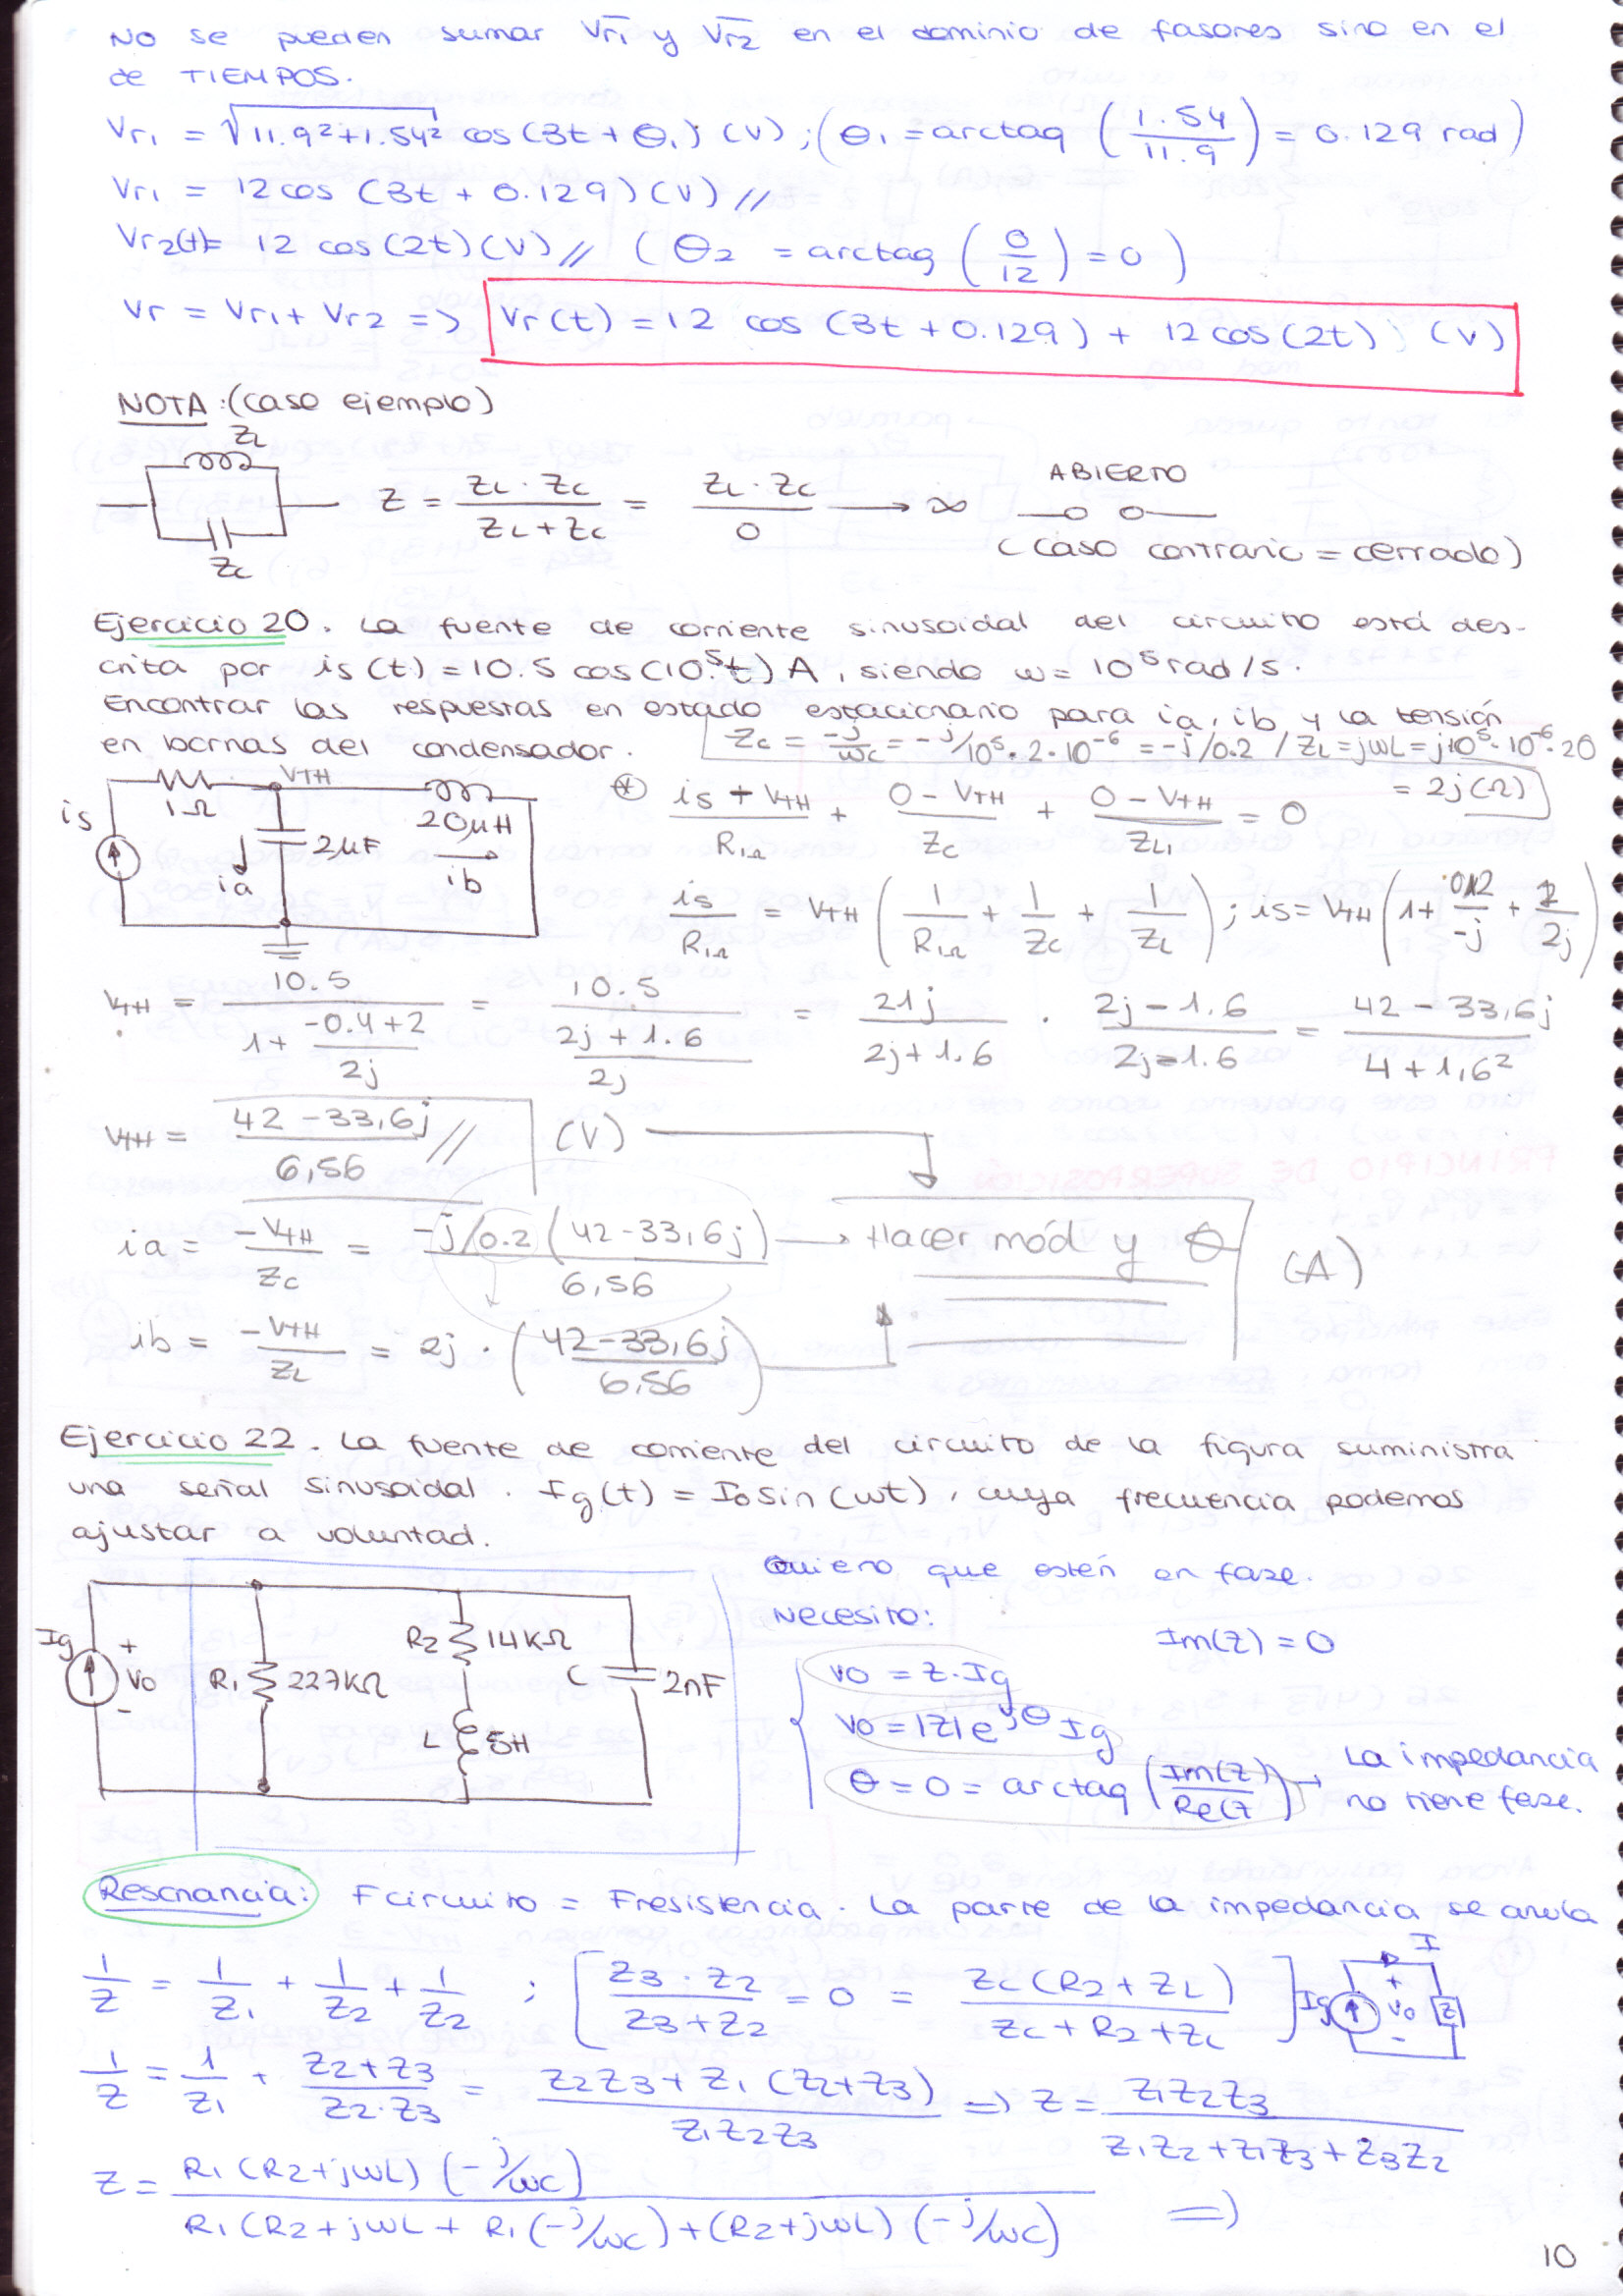 No se pueden sumar Vr1 y Vr2 en el dominio de fasores sino en el
de TIEMPOS.
Vr1 = √11.9²+1.54² cos(3t+θ1) (V) ; (θ1 = arctag (1.54/11.9) = 0.129 rad)
Vr1 = 12 cos (3t + 0.129) (V) //
Vr2(t) = 12 cos (2t) (V) // (θ2 = arctag (0/12) = 0)
Vr = Vr1 + Vr2 => Vr(t) = 12 cos (3t + 0.129) + 12 cos(2t) ; (V)
NOTA : (caso ejemplo)
ZL
ZC
Z = ZL · ZC / ZL + ZC = ZL · ZC / 0 → ∞
ABIERTO
(caso contrario = cerrado)
Ejercicio 20. La fuente de corriente sinusoidal del circuito está des-
crita por is(t) = 10.5 cos(10⁵t) A, siendo ω = 10⁵ rad/s.
Encontrar las respuestas en estado estacionario para ia, ib y la tensión
en bornas del condensador.
Zc = -j/ωC = -j/10⁵·2·10⁻⁶ = -j/0.2 / ZL = jωL = j10⁵·10⁻⁶·20
= 2j (Ω)
is
1Ω
VTH
20μH
2μF
ia
ib
* is + VTH / R1Ω + 0 - VTH / Zc + 0 - VTH / ZL1 = 0
is / R1Ω = VTH (1/R1Ω + 1/Zc + 1/ZL) ; is = VTH (1 + 0.2/-j + 1/2j)
VTH = 10.5 / 1 + -0.4+2 / 2j = 10.5 / 2j + 1.6 / 2j = 21j / 2j+1.6 · 2j - 1.6 / 2j - 1.6 = 42 - 33,6j / 4 + 1,6²
VTH = 42 - 33,6j / 6,56 // (V)
ia = -VTH / Zc = -j/0.2 (42 - 33,6j) / 6,56 → Hacer mód y θ (A)
ib = -VTH / ZL = 2j · (42 - 33,6j / 6,56)
Ejercicio 22. La fuente de corriente del circuito de la figura suministra
una señal sinusoidal. Ig(t) = I0 sin (ωt), cuya frecuencia podemos
ajustar a voluntad.
Ig
+
V0
-
R1 227KΩ
R2 14KΩ
L 5H
C 2nF
Quiero que estén en fase.
Necesito:
Im(Z) = 0
V0 = Z · Ig
V0 = |Z| e^jθ Ig
θ = 0 = arctag (Im(Z) / Re(Z) → La impedancia
no tiene fase.
Resonancia: Fcircuito = Fresistencia. La parte de la impedancia se anula
1/Z = 1/Z1 + 1/Z2 + 1/Z2 ; [Z3 · Z2 / Z3 + Z2 = 0 = Zc (R2 + ZL) / Zc + R2 + Zc]
I
Ig
+
V0
-
Z
1/Z = 1/Z1 + Z2+Z3 / Z2·Z3 = Z2Z3 + Z1 (Z2+Z3) / Z1Z2Z3 => Z = Z1Z2Z3 / Z1Z2 + Z1Z3 + Z3Z2
Z = R1 (R2+jωL) (-j/ωC) / R1 (R2 + jωL + R1 (-j/ωC) + (R2+jωL) (-j/ωC) =>
10